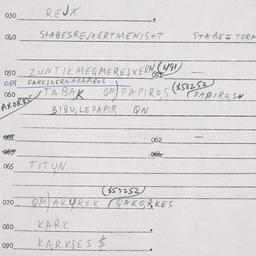 030 REJX .
040 STABESREJXERTMENIS+T STABES TORA
050 ZUNTIKMEGMEREJXERN (491) —
059 FAREJXERNAPAPIROS
060 TABAK QM) PAPIROS ($53252) (PAPIRO,SN
AXORKE/
BIBU,LEPAPIR QN
061 062 —
063 064
065 TITUN .
($53252)
070 QM) AKUROK (QAKO,RKES
080 KARK .
090 KARKSES $ .